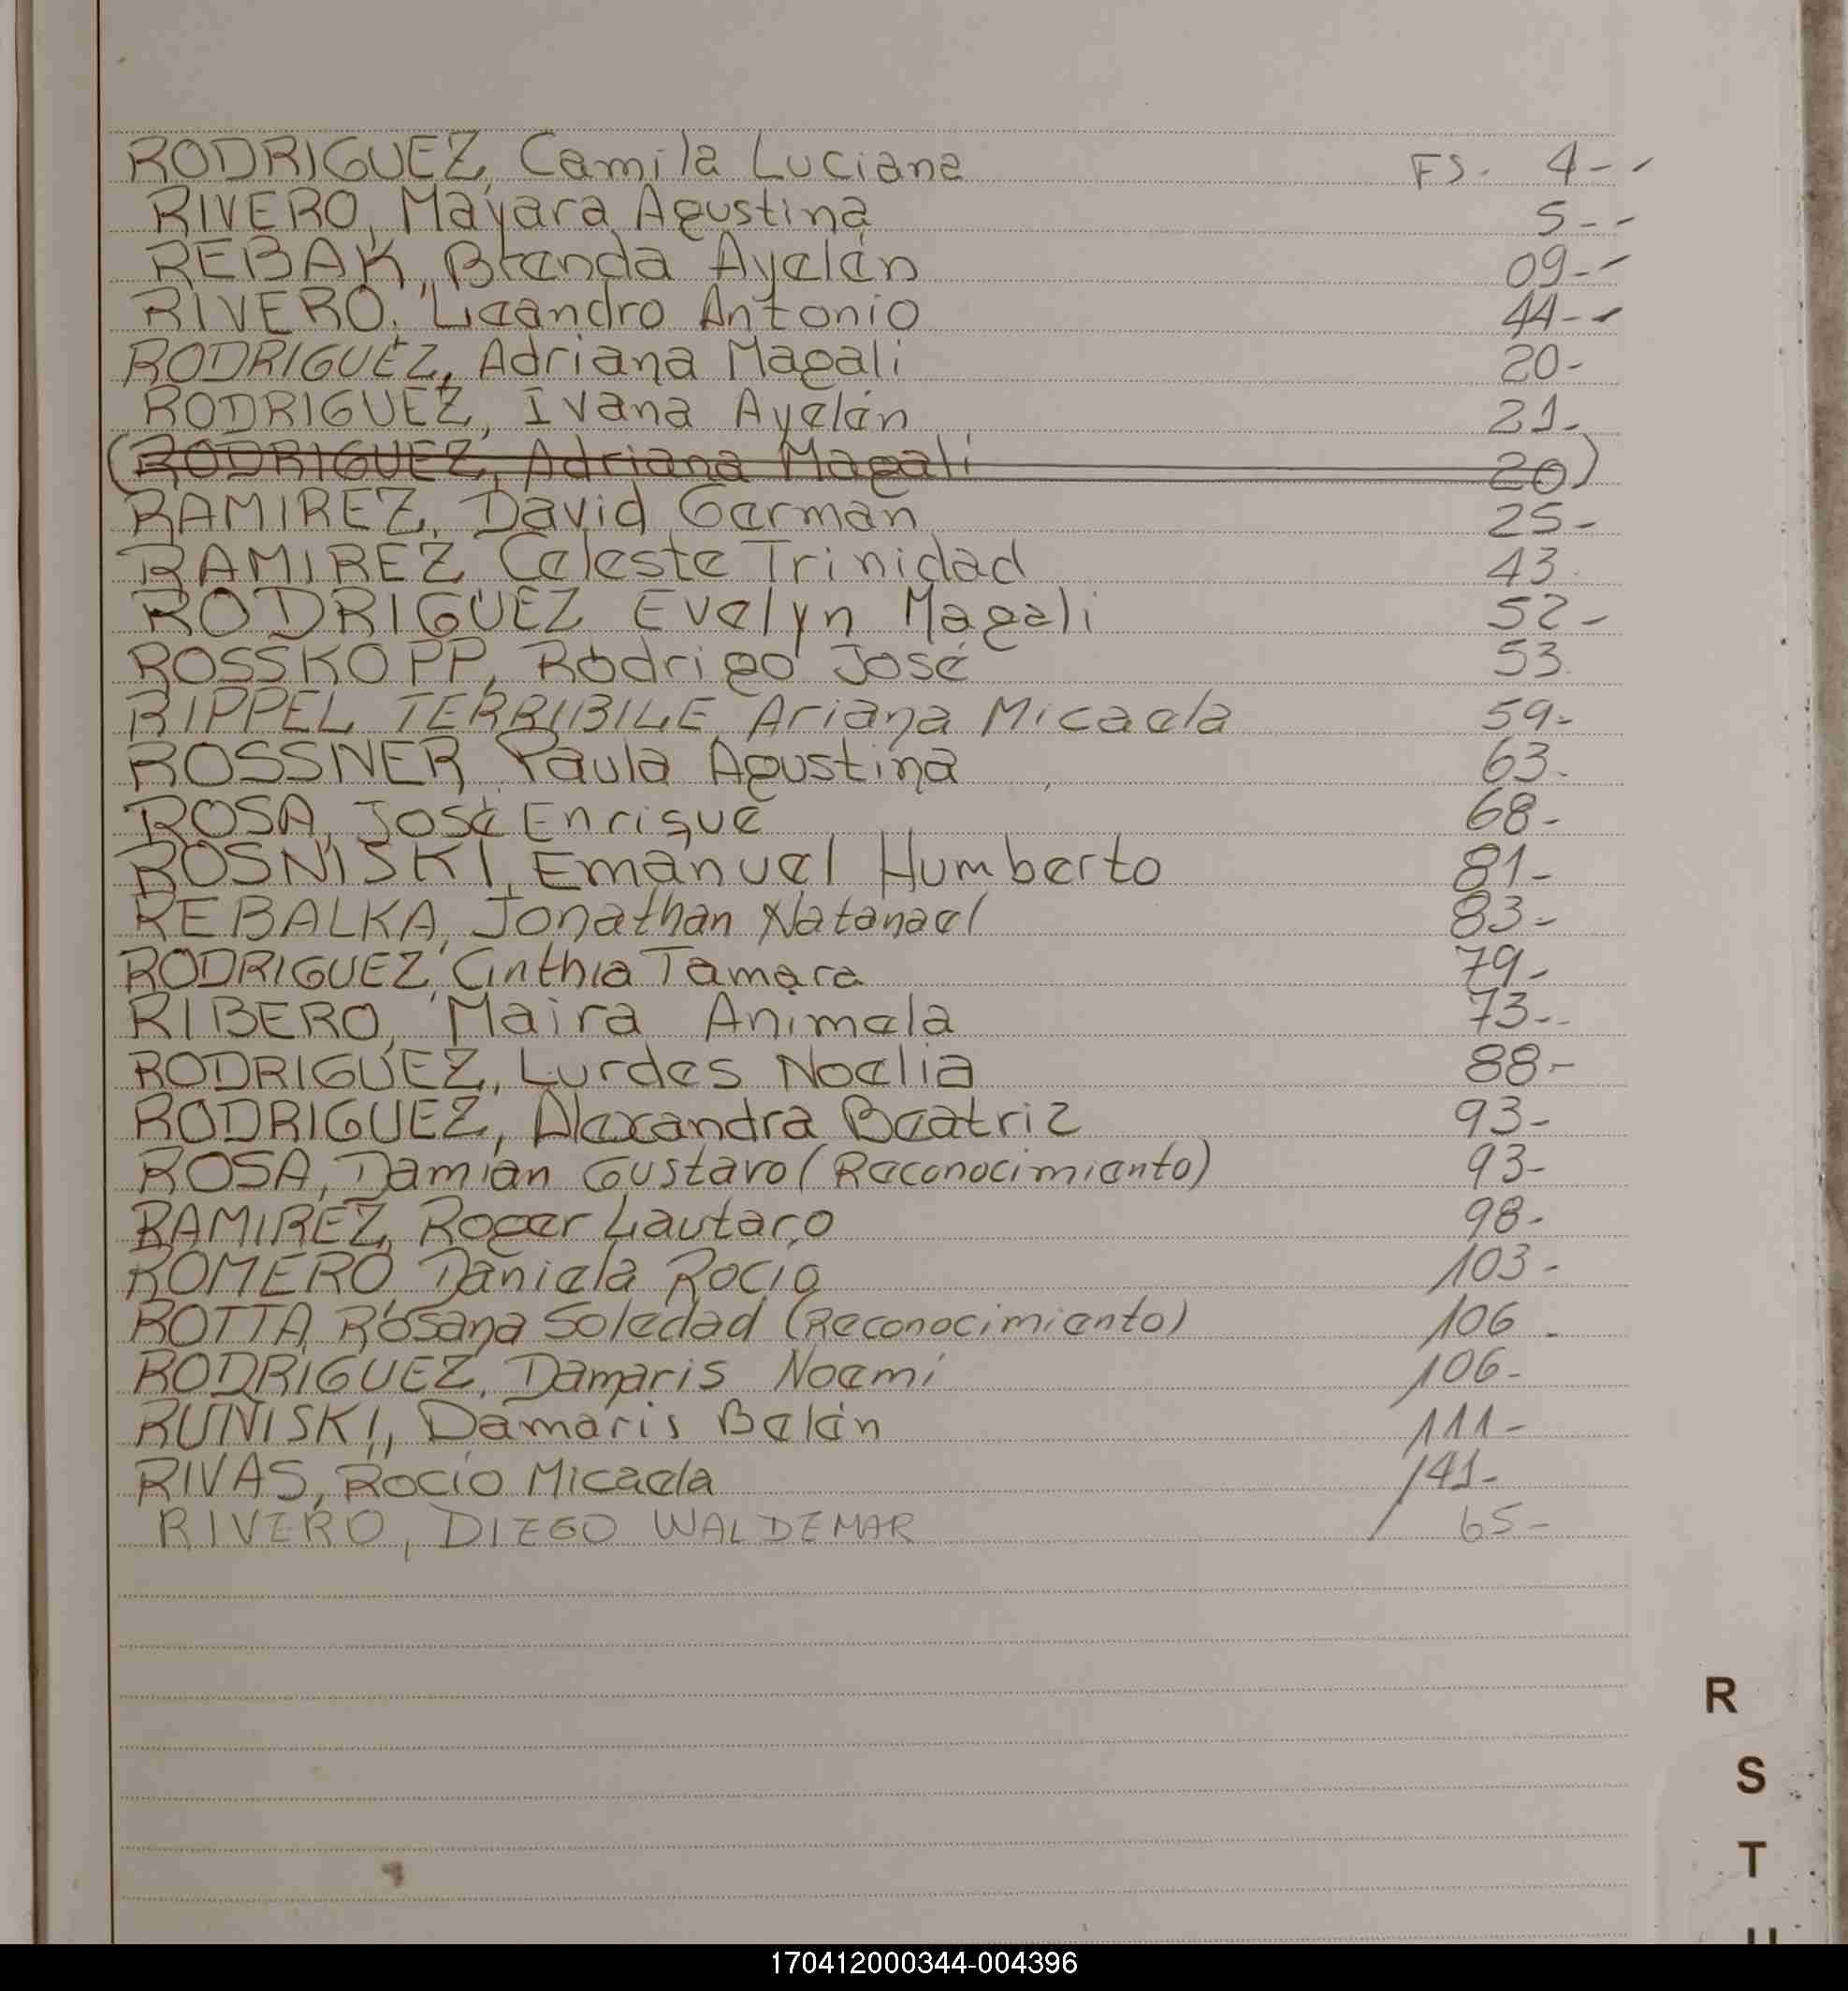 RODRIGUEZ, Camila Luciana FS. 4--
RIVERO, Mayara Agustina 5--
REBAK, Brenda Ayelén 09--
RIVERO, Leandro Antonio 11--
RODRIGUEZ, Adriana Magali 20-
RODRIGUEZ, Ivana Ayelén 21-
(RODRIGUEZ, Adriana Magali 20)
RAMIREZ, David German 25-
RAMIREZ, Celeste Trinidad 43.
RODRIGUEZ Evelyn Magali 52-
ROSSKOPP, Rodrigo José 53.
RIPPEL TERRIBILE Ariana Micaela 59-
ROSSNER, Paula Agustina 63.
ROSA, José Enrique 68-
ROSNISKI, Emanuel Humberto 81-
REBALKA, Jonathan Natanael 83-
RODRIGUEZ, Cinthia Tamara 79-
RIBERO, Maira Animela 73--
RODRIGUEZ, Lurdes Noelia 88-
RODRIGUEZ, Alexandra Beatriz 93-
ROSA, Damián Gustavo (Reconocimiento) 93-
RAMIREZ, Roger Lautaro 98-
ROMERO, Daniela Rocío 103-
ROTTA, Rosana Soledad (Reconocimiento) 106-
RODRIGUEZ, Damaris Noemí 106-
RUNISKI, Damaris Belén 111-
RIVAS, Rocío Micaela 141-
RIVERO, DIEGO WALDEMAR 65-
R
S
T
170412000344-004396